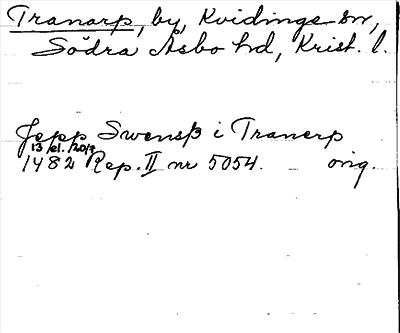 Tranarp, by, Kvidinge sn,
Södra Åsbo hd, Krist. l.
Jepp Swensß i Tranerp
13/el. /20/7
1482 Rep. II nr 5054. orig.